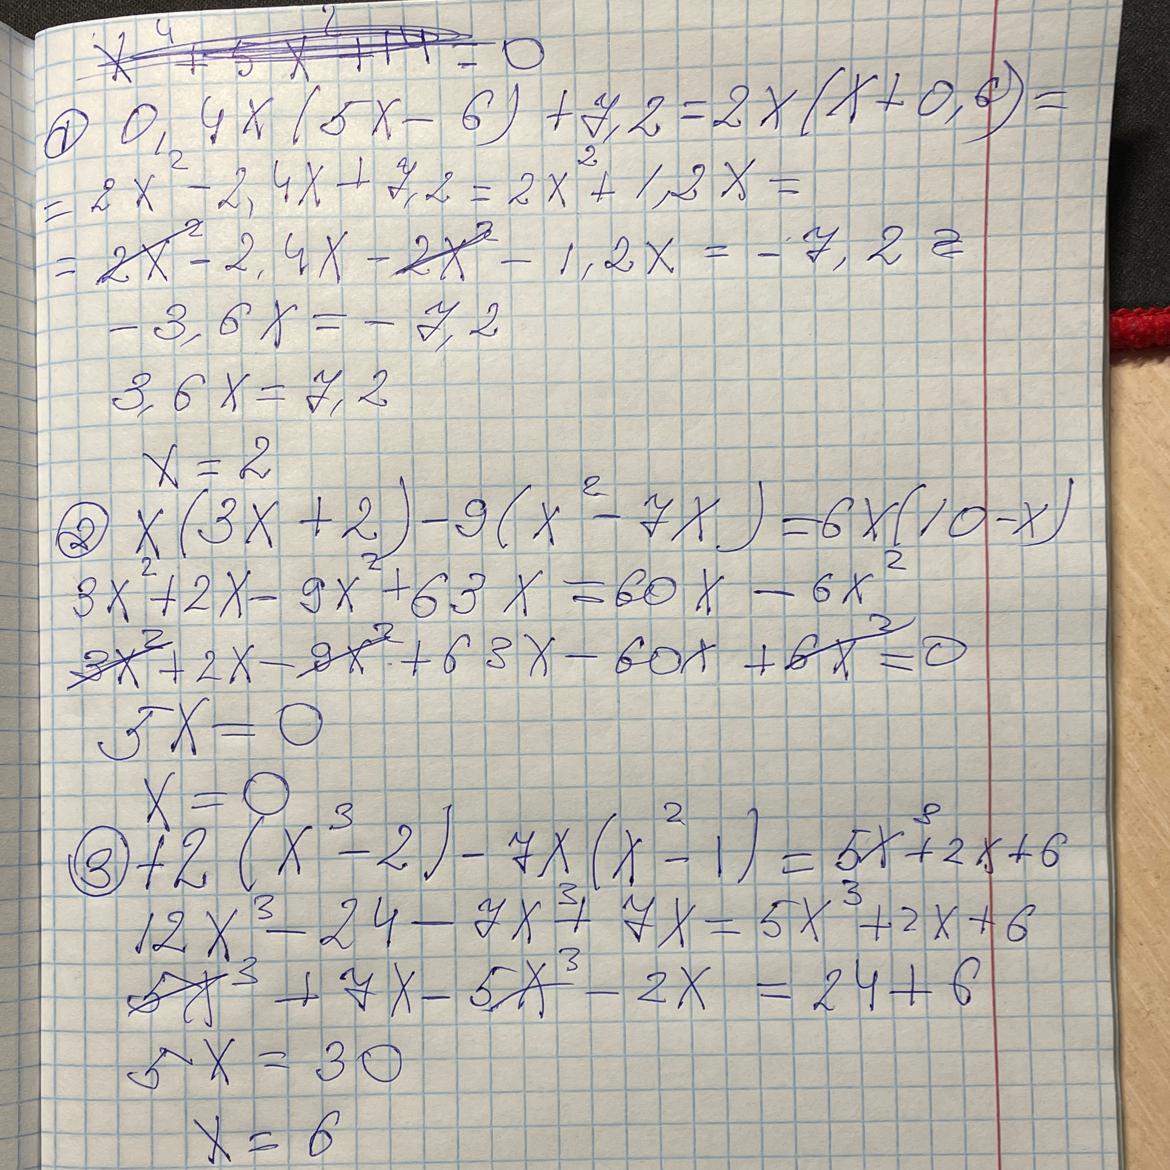 x⁴ + 5x² + 11 = 0
① 0,4x(5x - 6) + 7,2 = 2x(x + 0,6) =
= 2x² - 2,4x + 7,2 = 2x² + 1,2x =
= 2x² - 2,4x - 2x² - 1,2x = -7,2 =
-3,6x = -7,2
3,6x = 7,2
x = 2
② x(3x + 2) - 9(x² - 7x) = 6x(10 - x)
3x² + 2x - 9x² + 63x = 60x - 6x²
3x² + 2x - 9x² + 63x - 60x + 6x² = 0
5x = 0
x = 0
③ +2(x³ - 2) - 7x(x² - 1) = 5x³ + 2x + 6
12x³ - 24 - 7x³ + 7x = 5x³ + 2x + 6
5x³ + 7x - 5x³ - 2x = 24 + 6
5x = 30
x = 6